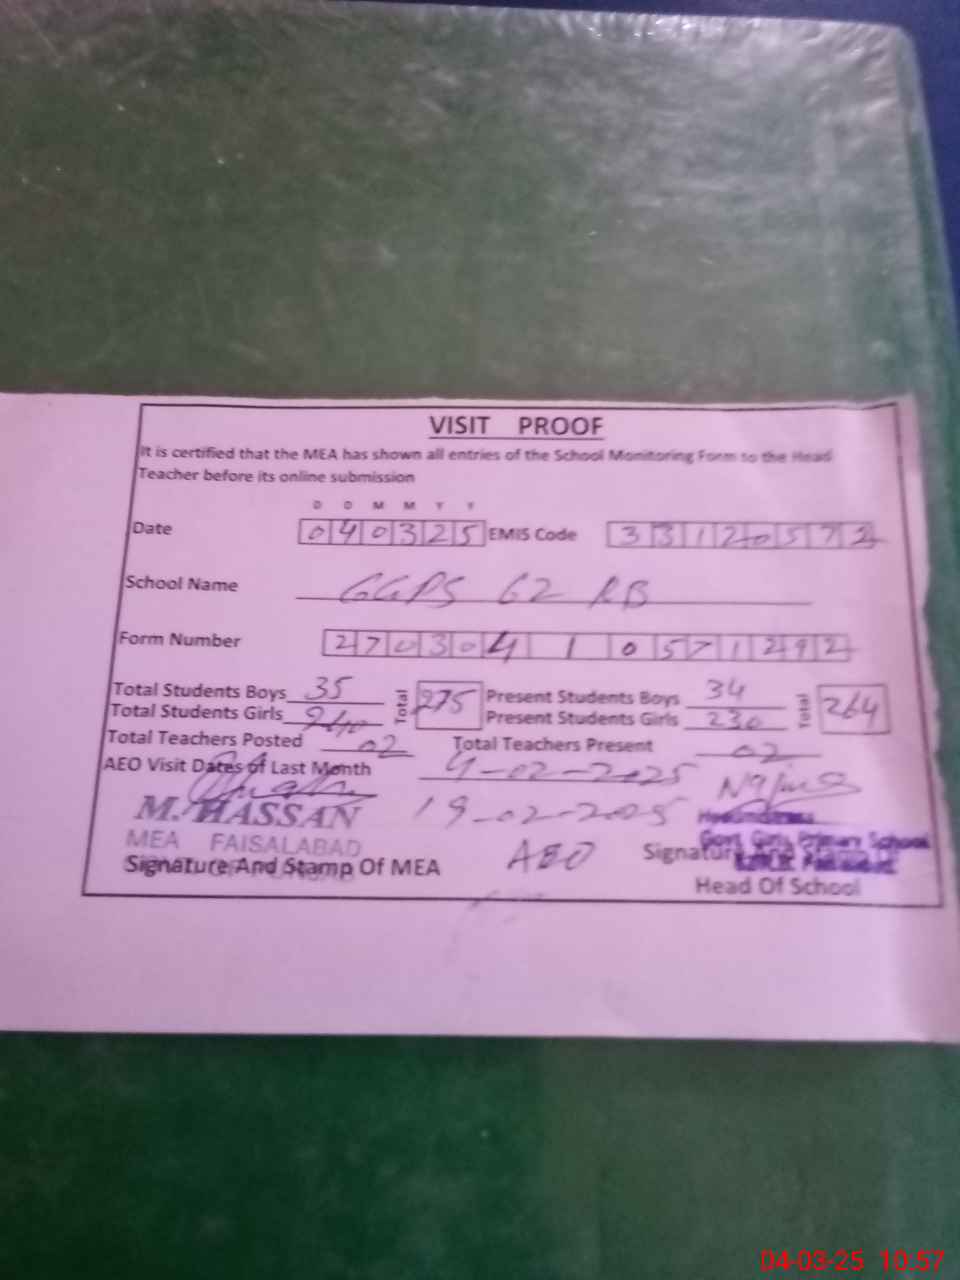 VISIT PROOF
It is certified that the MEA has shown all entries of the School Monitoring Form to the Head
Teacher before its online submission
D D M M Y Y
Date 040325 EMIS Code 33120572
School Name GGPS 62 RB
Form Number 270304 1 0571292
Total Students Boys 35 Total 275 Present Students Boys 34 Total 264
Total Students Girls 240 Present Students Girls 230
Total Teachers Posted 02 Total Teachers Present 02
AEO Visit Dates of Last Month 4-02-2025
19-02-2025
M. HASSAN
MEA FAISALABAD
Signature And Stamp Of MEA AEO Signature
Govt. Girls Primary School
Head Of School
04-03-25 10:57